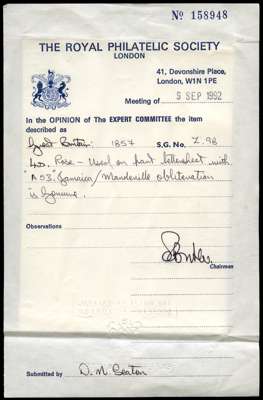 Nº 158948
THE ROYAL PHILATELIC SOCIETY
LONDON
41, Devonshire Place,
London, W1N 1PE
Meeting of 9 SEP 1992
In the OPINION of The EXPERT COMMITTEE the item
described as
Great Britain: 1857 S.G. No. Z.98
4d. Rose - Used on part lettersheet with
"A53" Jamaica/Mandeville obliteration
is genuine.
Observations
Chairman
Submitted by D. M. Beaton